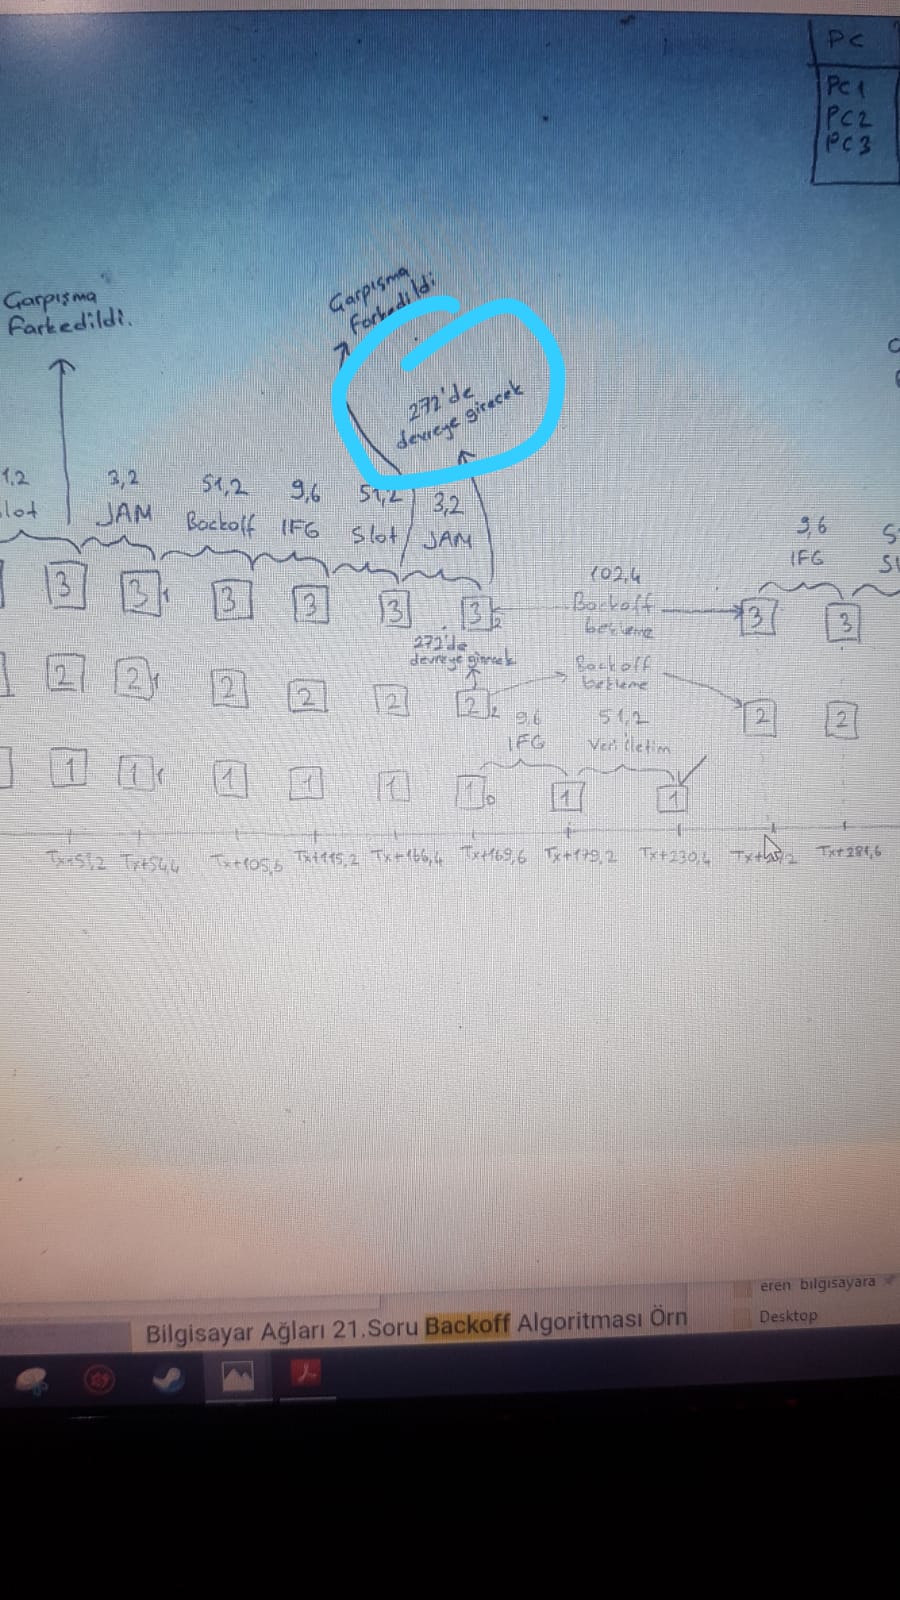 PC
PC1
PC2
PC3
Çarpışma
farkedildi.
Çarpışma
farkedildi
272'de
devreye girecek
3,2
JAM
51,2
Backoff
9,6
IFG
51,2
Slot
3,2
JAM
102,4
Backoff
bekleme
9,6
IFG
3
3
3
3
3
3
3
3
272'de
devreye girecek
Backoff
bekleme
2
2
2
2
2
2
2
2
9,6
IFG
51,2
Veri iletim
1
1
1
1
1
1
1
1
Tx+51,2 Tx+54,4 Tx+105,6 Tx+115,2 Tx+166,4 Tx+169,6 Tx+179,2 Tx+230,4 Tx+281,6
eren bilgisayara
Bilgisayar Ağları 21.Soru Backoff Algoritması Örn
Desktop